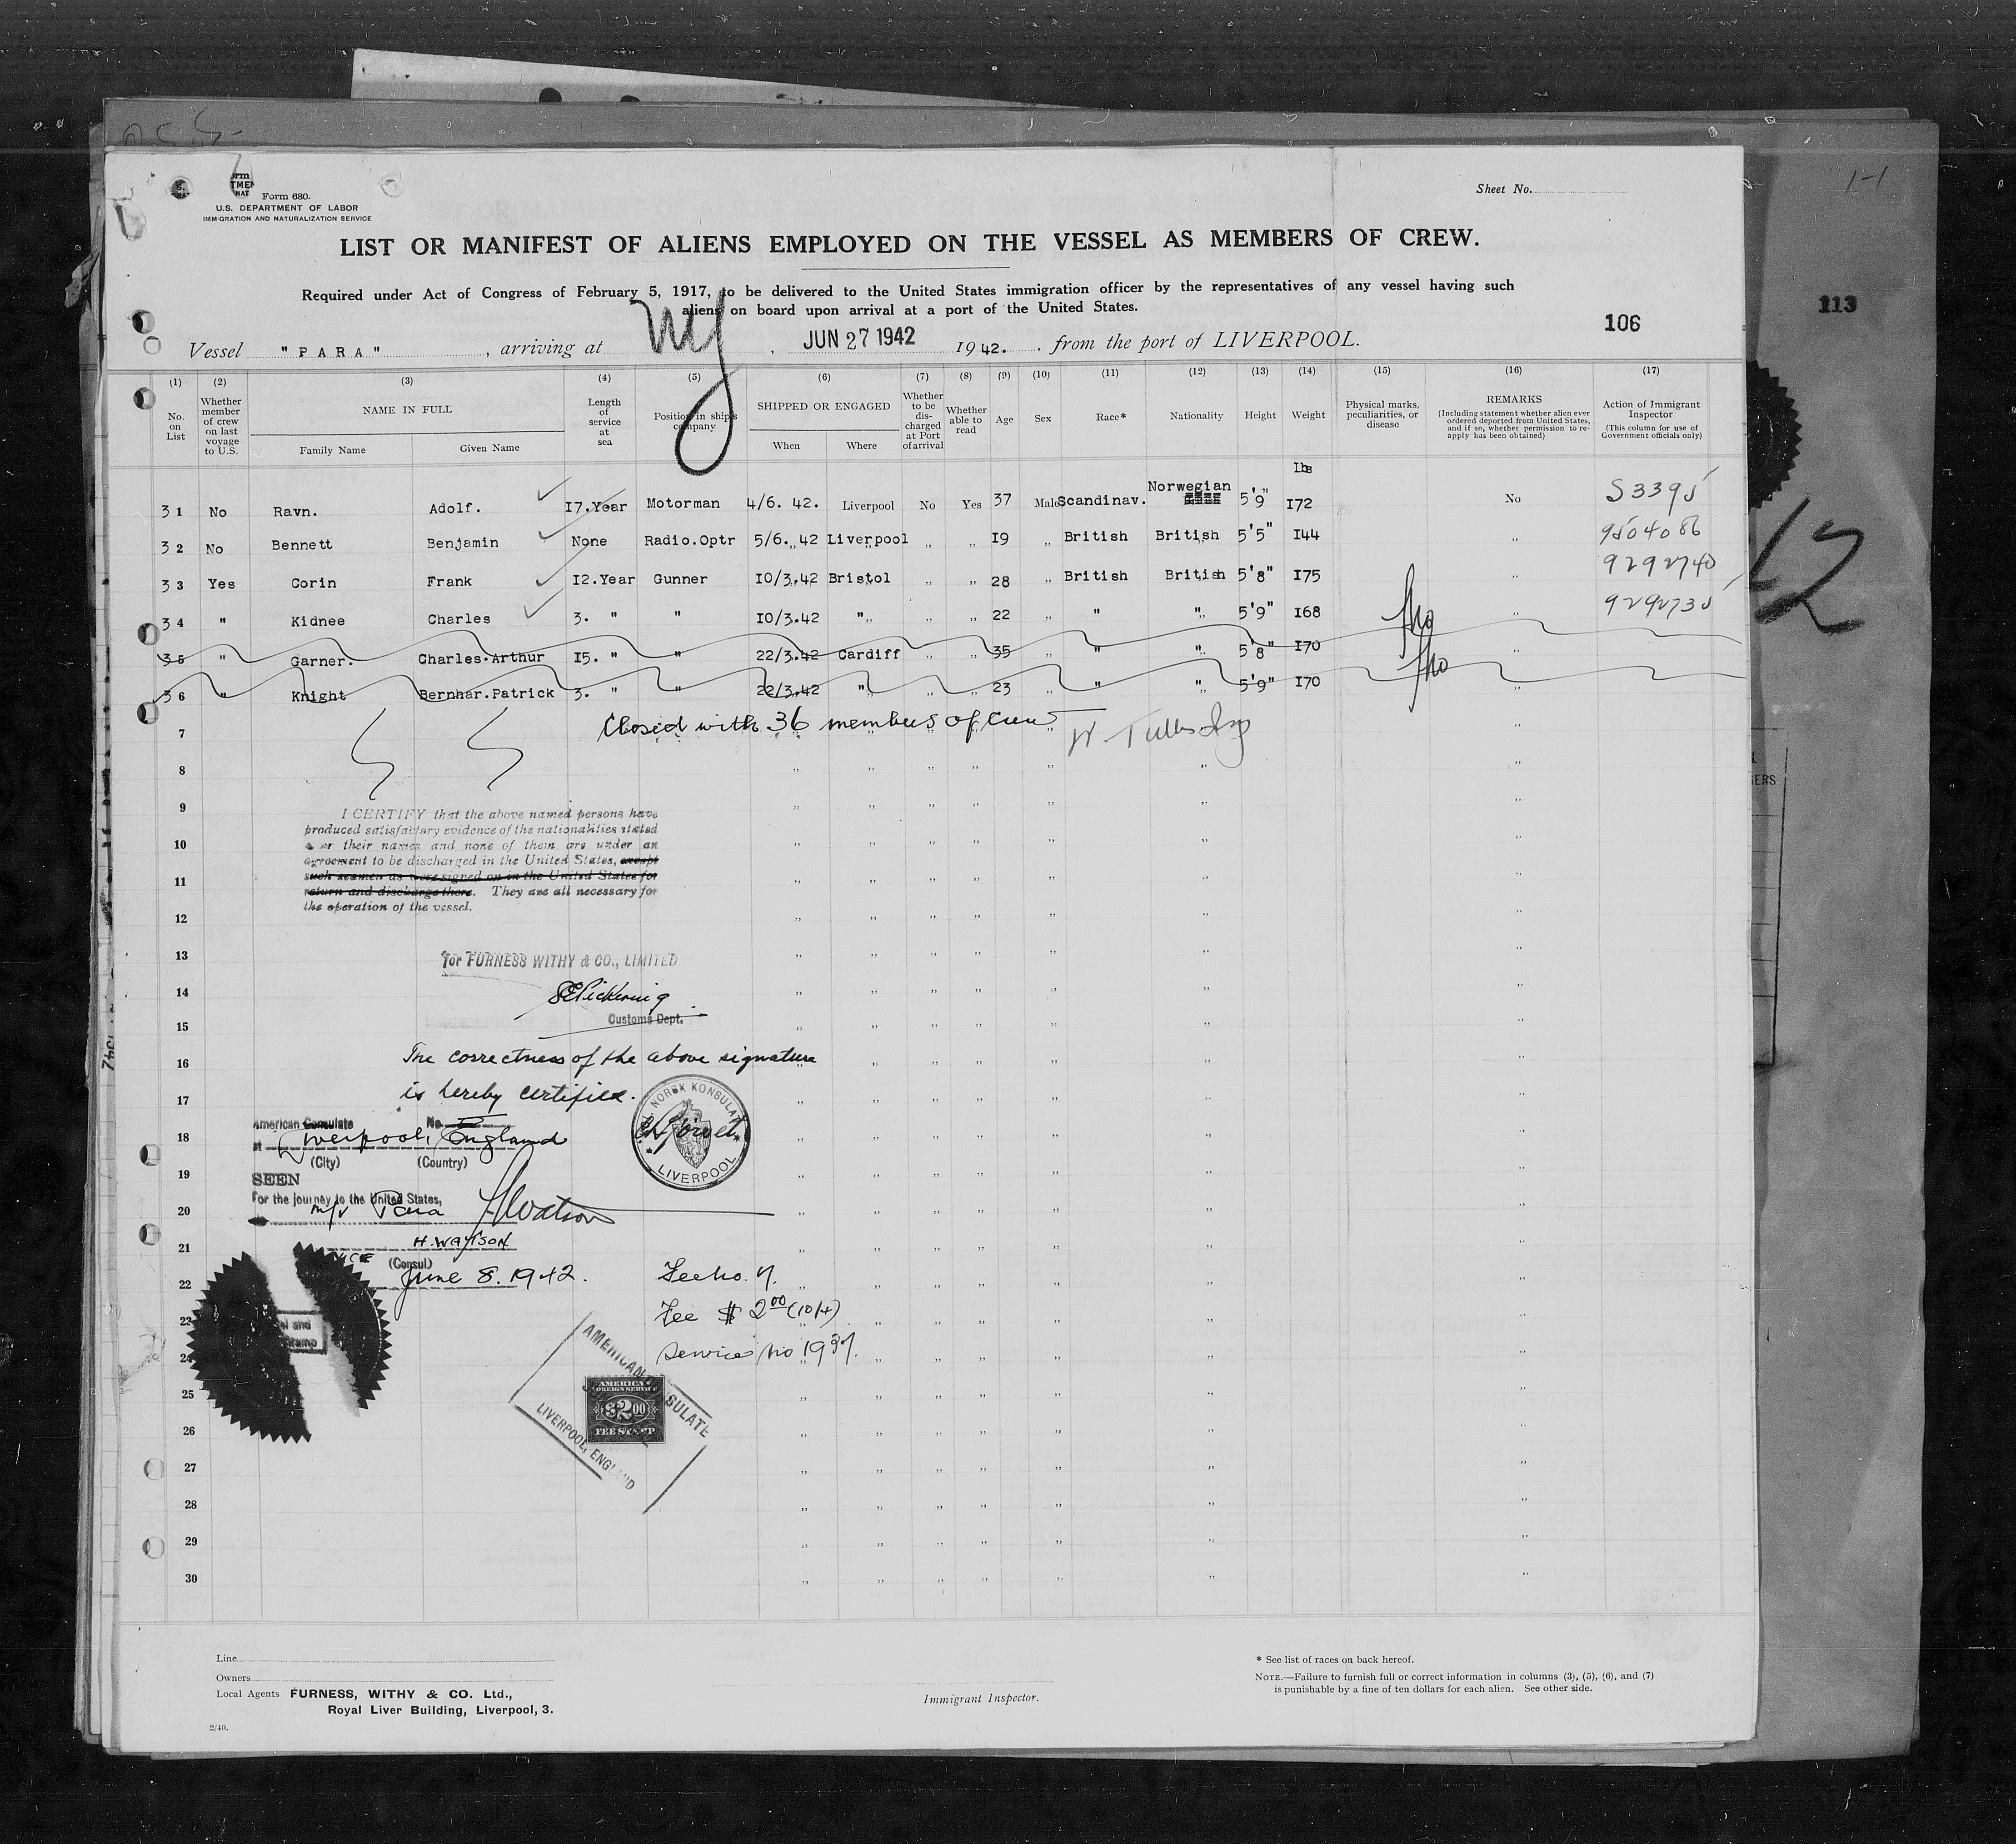 Form 680.
U.S. DEPARTMENT OF LABOR
IMMIGRATION AND NATURALIZATION SERVICE
Sheet No.
LIST OR MANIFEST OF ALIENS EMPLOYED ON THE VESSEL AS MEMBERS OF CREW.
Required under Act of Congress of February 5, 1917, to be delivered to the United States immigration officer by the representatives of any vessel having such
aliens on board upon arrival at a port of the United States.
106
113
Vessel "PARA", arriving at NY, JUN 27 1942 1942. from the port of LIVERPOOL.
(1) (2) (3) (4) (5) (6) (7) (8) (9) (10) (11) (12) (13) (14) (15) (16) (17)
No. on List
Whether member of crew on last voyage to U.S.
NAME IN FULL
Family Name
Given Name
Length of service at sea
Position in ship's company
SHIPPED OR ENGAGED
When
Where
Whether to be discharged at Port of arrival
Whether able to read
Age
Sex
Race*
Nationality
Height
Weight
Physical marks, peculiarities, or disease
REMARKS
(Including statement whether alien ever ordered deported from United States, and if so, whether permission to reapply has been obtained)
Action of Immigrant Inspector
(This column for use of Government officials only)
Lbs
31 No Ravn. Adolf. 17.Year Motorman 4/6. 42. Liverpool No Yes 37 Male Scandinav. Norwegian 5'9" 172 No S3395
32 No Bennett Benjamin None Radio.Optr 5/6. 42 Liverpool ,, ,, 19 ,, British British 5'5" 144 ,, 9504086
33 Yes Corin Frank 12.Year Gunner 10/3.42 Bristol ,, ,, 28 ,, British British 5'8" 175 ,, 9292740
34 " Kidnee Charles 3. " " 10/3.42 " ,, ,, 22 ,, " " 5'9" 168 ,, 9292735
35 " Garner. Charles.Arthur 15. " " 22/3.42 Cardiff ,, ,, 35 ,, " " 5'8" 170 ,,
36 " Knight Bernhar.Patrick 3. " " 22/3.42 " ,, ,, 23 ,, " " 5'9" 170 ,,
Closed with 36 members of Crew
7
8
9
10
11
12
13
14
15
16
17
18
19
20
21
22
23
24
25
26
27
28
29
30
I CERTIFY that the above named persons have
produced satisfactory evidence of the nationalities stated
or their names and none of them are under an
agreement to be discharged in the United States, except
such seamen as were signed on in the United States for
return and discharge there. They are all necessary for
the operation of the vessel.
for FURNESS WITHY & CO., LIMITED
Customs Dept.
The correctness of the above signature
is hereby certified.
NORSK KONSULAT
LIVERPOOL
American Consulate No.
at Liverpool, England
(City) (Country)
SEEN
For the journey to the United States,
m/v Para
H. WATSON
VICE (Consul)
June 8. 1942.
Fee $ 2.00 (10/4)
Service No 1937.
AMERICAN CONSULATE
LIVERPOOL, ENGLAND
AMERICAN
FOREIGN SERVICE
$2.00
FEE STAMP
Line
Owners
Local Agents FURNESS, WITHY & CO. Ltd.,
Royal Liver Building, Liverpool, 3.
2/40.
Immigrant Inspector.
* See list of races on back hereof.
NOTE.—Failure to furnish full or correct information in columns (3), (5), (6), and (7)
is punishable by a fine of ten dollars for each alien. See other side.